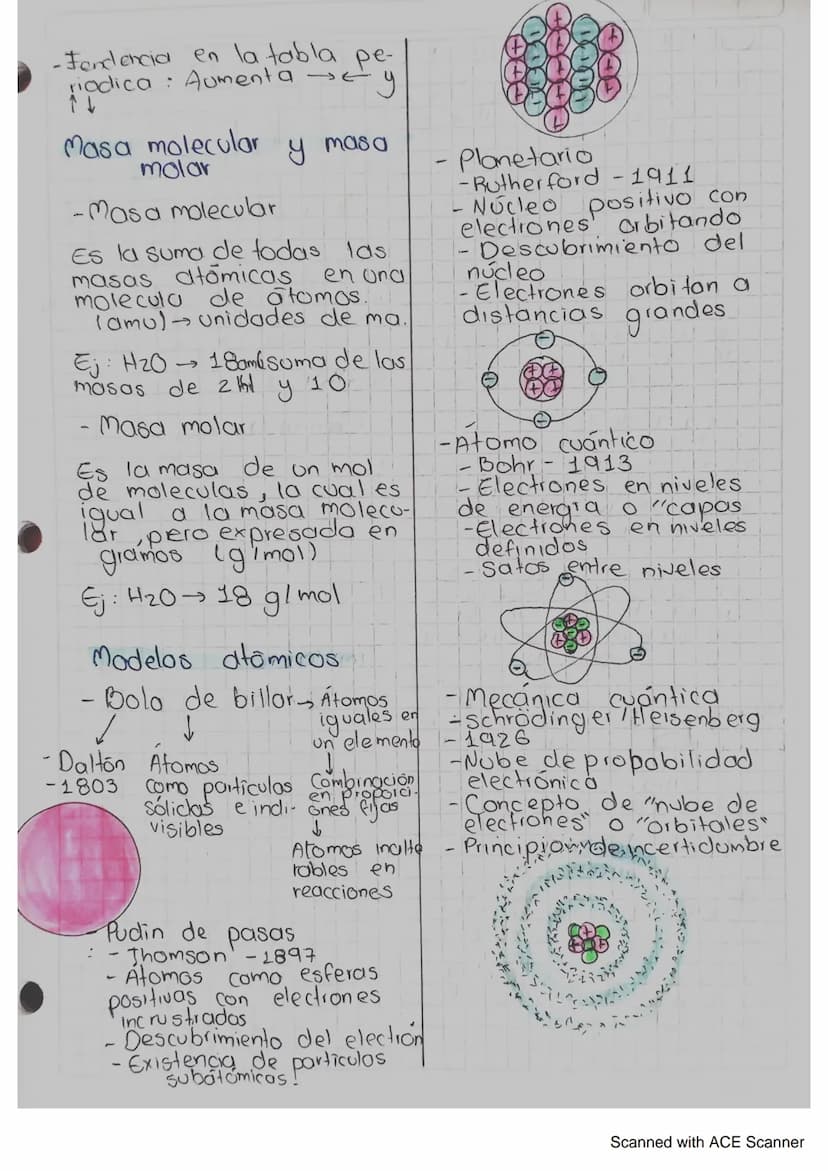 -Tendencia en la tabla pe-
riodica : Aumenta →← y
↑↓
Masa molecular y masa
molar
-Masa molecular
Es la suma de todas las
masas atómicas en una
molecula de átomos.
(amu)→unidades de ma.
Ej: H2O → 18 suma de las
masas de 2 y 1O
- Masa molar
Es la masa de un mol
de moleculas, la cual es
igual a la masa molecu-
lar, pero expresada en
gramos (g/mol)
Ej: H2O → 18 g/mol
Modelos atómicos
- Bola de billar→ Átomos
iguales en
un elemento
↓
Combinación
en proporci-
ones fijas
↓
Atomos inalte
rables en
reacciones
- Daltón
-1803
Átomos
como partículas
sólidas e indi-
visibles
Pudin de pasas
: - Thomson -1897
- Átomos como esferas
positivas con electrones
incrustrados
- Descubrimiento del electrón
- Existencia de partículas
subatómicas!
- Planetario
-Rutherford - 1911
- Núcleo positivo con
electrones orbitando
- Descubrimiento del
núcleo
-Electrones orbitan a
distancias grandes
-Átomo cuántico
- Bohr - 1913
- Electrones en niveles
de energía o "capas
-Electrones en niveles
definidos
- Satos entre niveles
- Mecánica cuántica
-Schrödinger/Heisenberg
- 1926
-Nube de probabilidad
electrónica
-Concepto de "nube de
electrones" o "orbitales"
- Principio de incertidumbre
Scanned with ACE Scanner